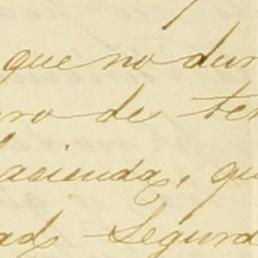 que no dur
uro de ter
hacienda, qu
ad Segurd